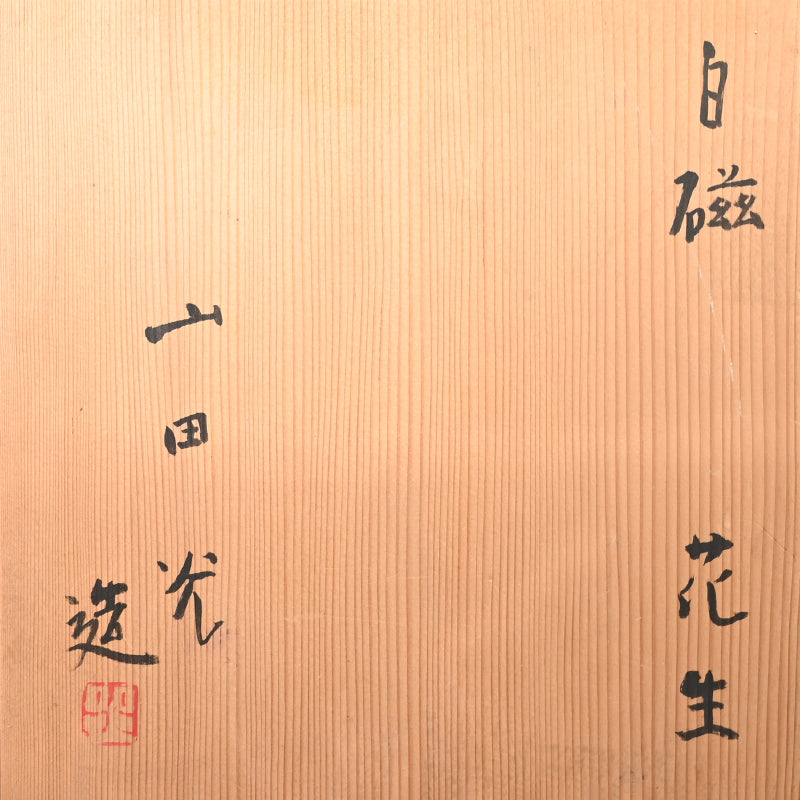 白磁 花生
山田光
造